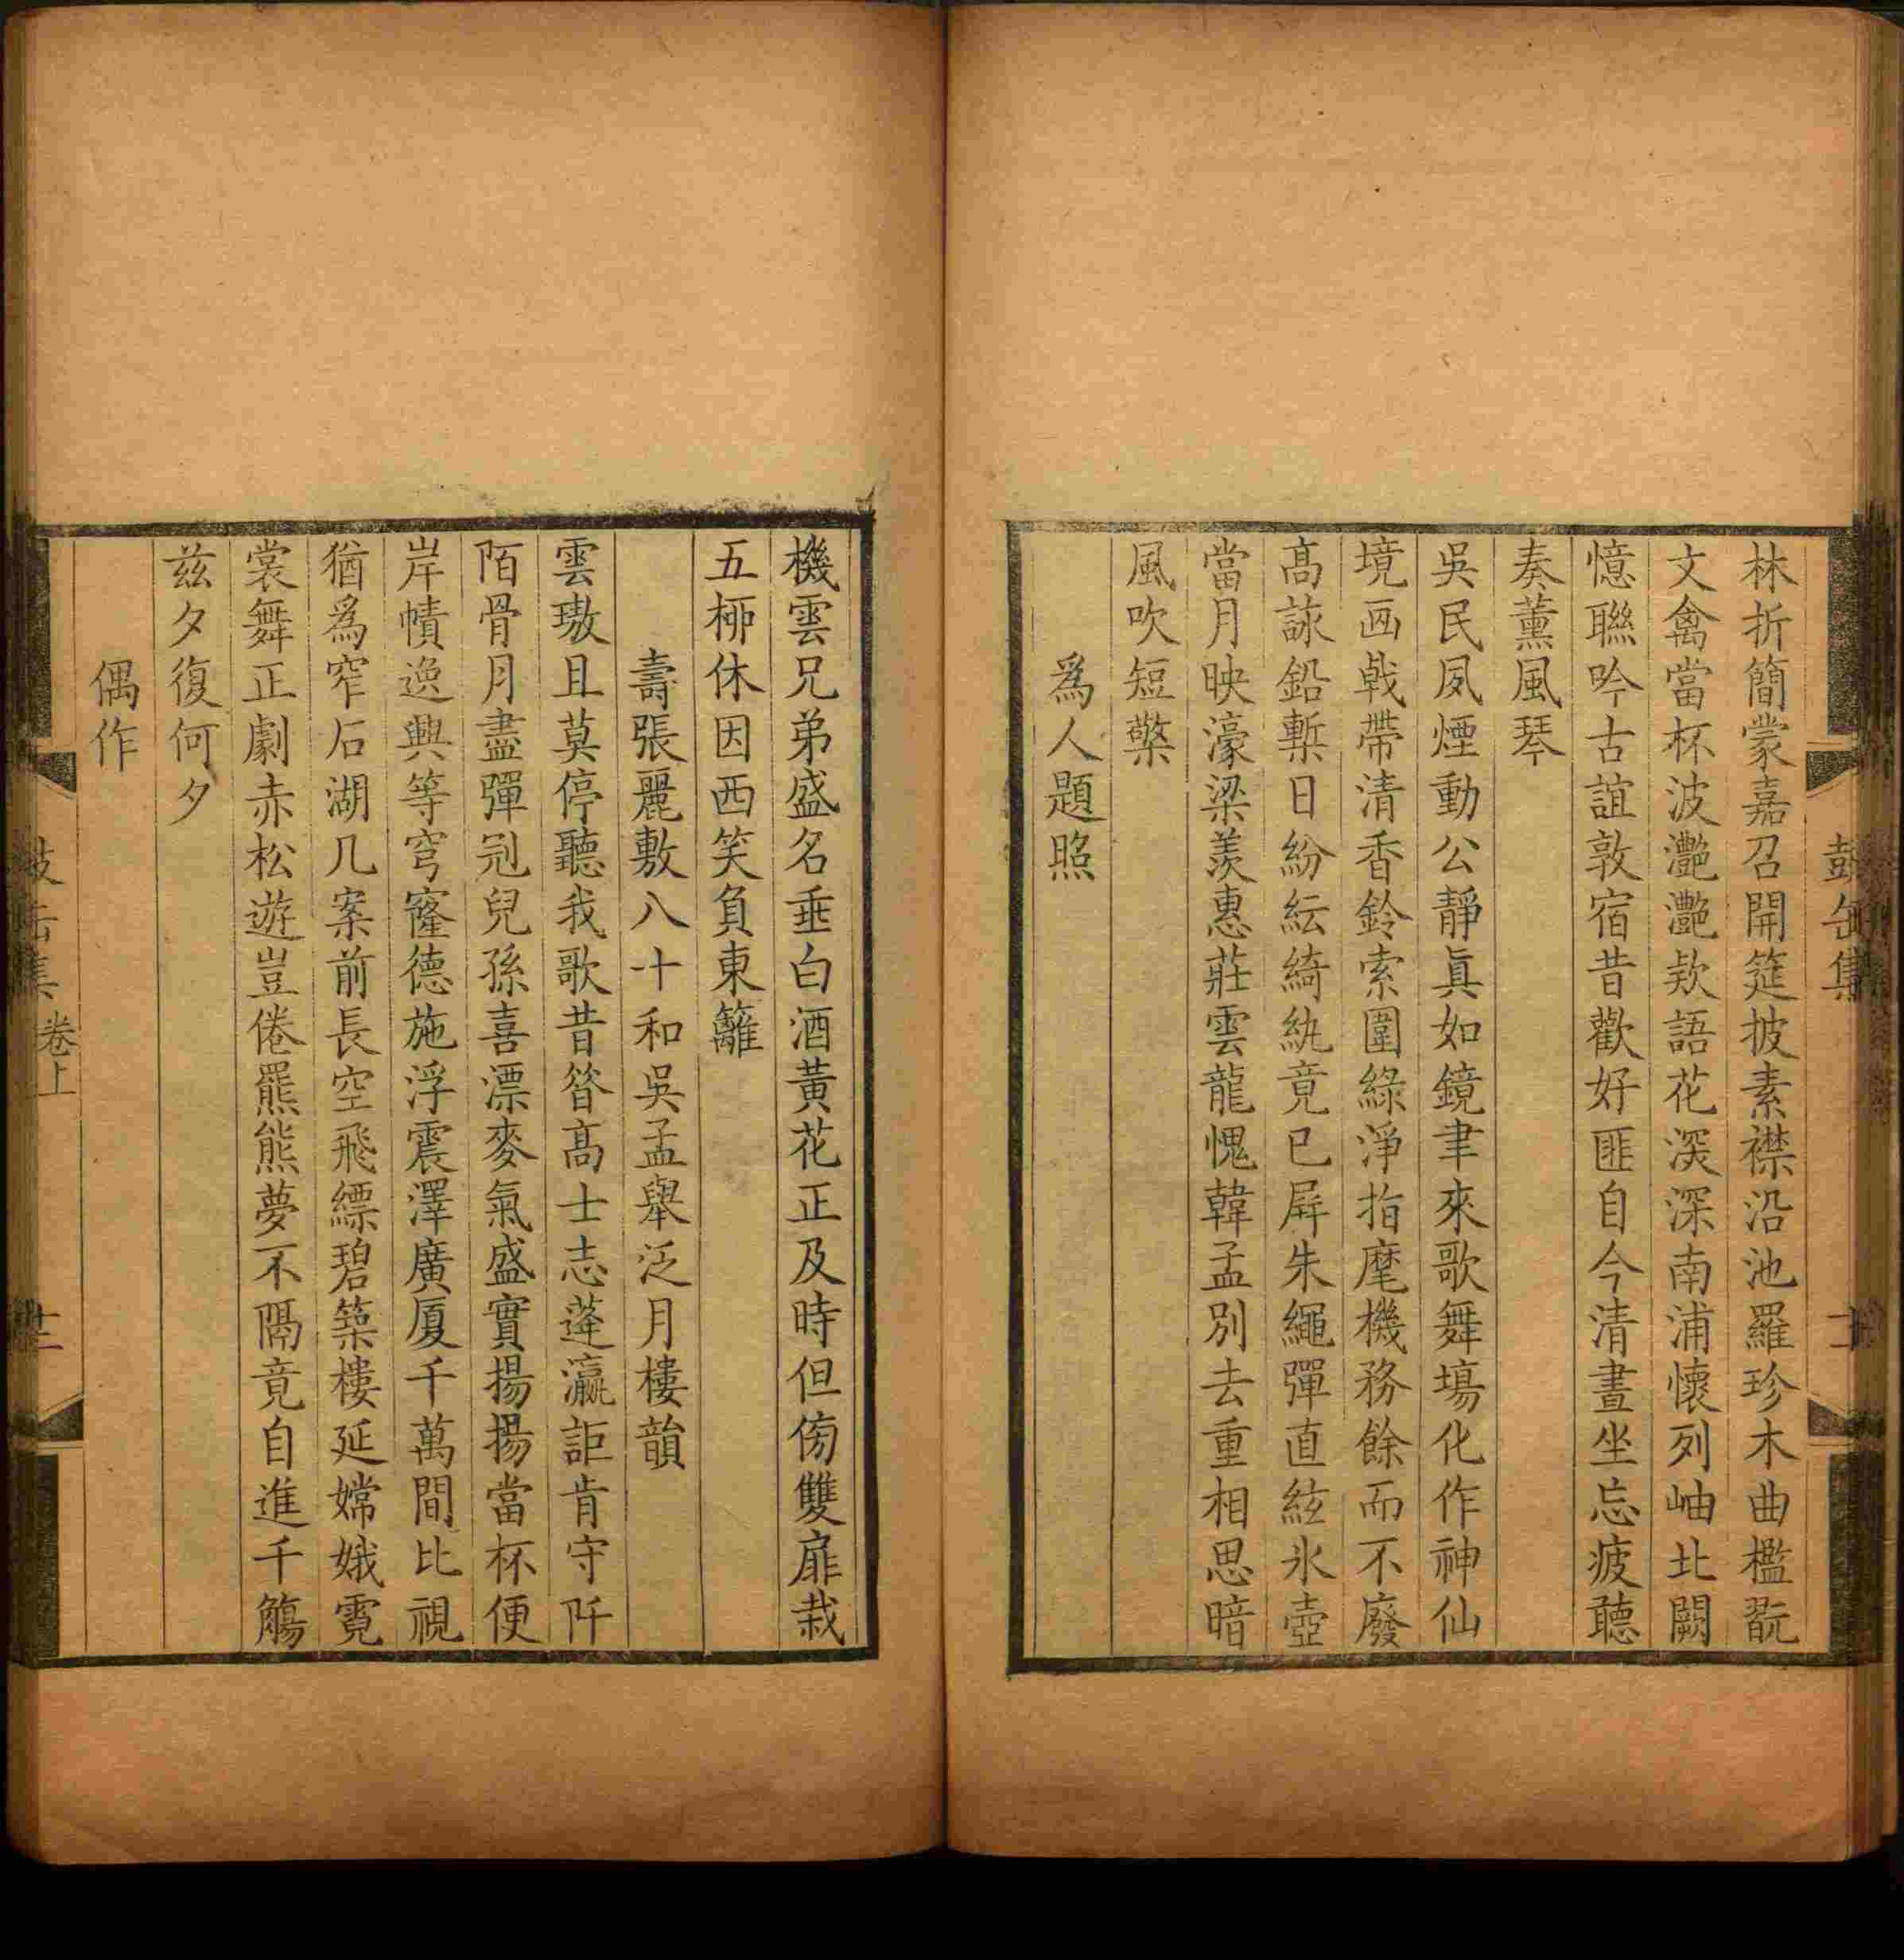 林折簡蒙嘉召開筵披素襟沿池羅珍木曲檻翫
文禽當杯波灔灔欵語花深深南浦懷列岫北闕
憶聯吟古誼敦宿昔歡好匪自今清晝坐忘疲聽
奏薰風琴
吳民夙煙動公靜眞如鏡聿來歌舞塲化作神仙
境画戟帶清香鈴索圍綠淨指麾機務餘而不廢
高詠鉛槧日紛紜綺紈竟已屏朱繩彈直絃氷壺
當月映濠梁羨惠莊雲龍愧韓孟別去重相思暗
風吹短檠
爲人題照
機雲兄弟盛名垂白酒黃花正及時但傍雙扉栽
五柳休因西笑負東籬
壽張麗敷八十和吳孟舉泛月樓韻
雲璈且莫停聽我歌昔昝高士志蓬瀛詎肯守阡
陌骨月盡彈冠兒孫喜漂麥氣盛實揚揚當杯便
岸幘逸興等穹窿德施浮震澤廣厦千萬間比視
猶爲窄石湖几案前長空飛縹碧築樓延嫦娥霓
裳舞正劇赤松遊豈倦羆熊夢不隔竟自進千觴
兹夕復何夕
偶作
卷上